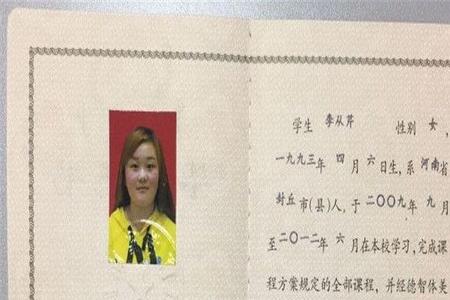 学生 李从芹 性别 女，
一九九三年 四 月 六 日生，系 河南省
封丘 市(县)人，于二〇〇九年 九 月
至二〇一二年 六 月在本校学习，完成课
程方案规定的全部课程，并经德智体美